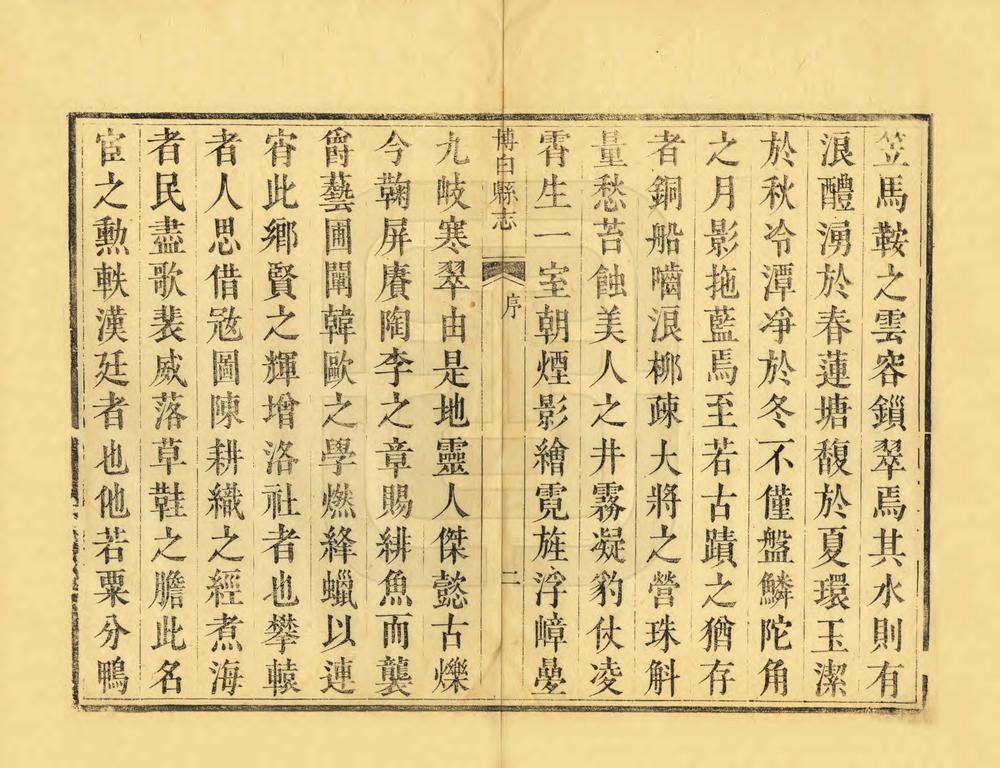 笠馬鞍之雲容鎻翠焉其水則有
浪醴湧於春蓮塘馥於夏環玉潔
於秋冷潭淨於冬不僅盤鱗陀角
之月影拖藍焉至若古蹟之猶存
者銅船嚙浪柳疎大將之營珠斛
量愁苔蝕美人之井霧凝豹仗凌
霄生一室朝煙影繪霓旌浮嶂曡
博白縣志
序
二
九岐寒翠由是地靈人傑懿古爍
今鞠屏賡陶李之章賜緋魚而襲
爵藝圃闡韓歐之學燃絳蠟以連
宵此鄉賢之輝增洛社者也攀轅
者人思借宼圖陳耕織之經煮海
者民盡歌裴威落草鞋之膽此名
宦之勳軼漢廷者也他若粟分鴨